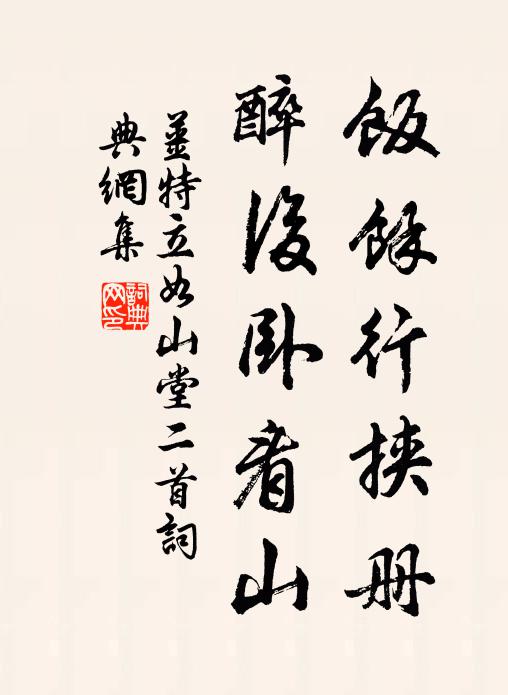 飯餘行挾册
醉後卧看山
姜特立如山堂二首詞
典網集
詞典
网印